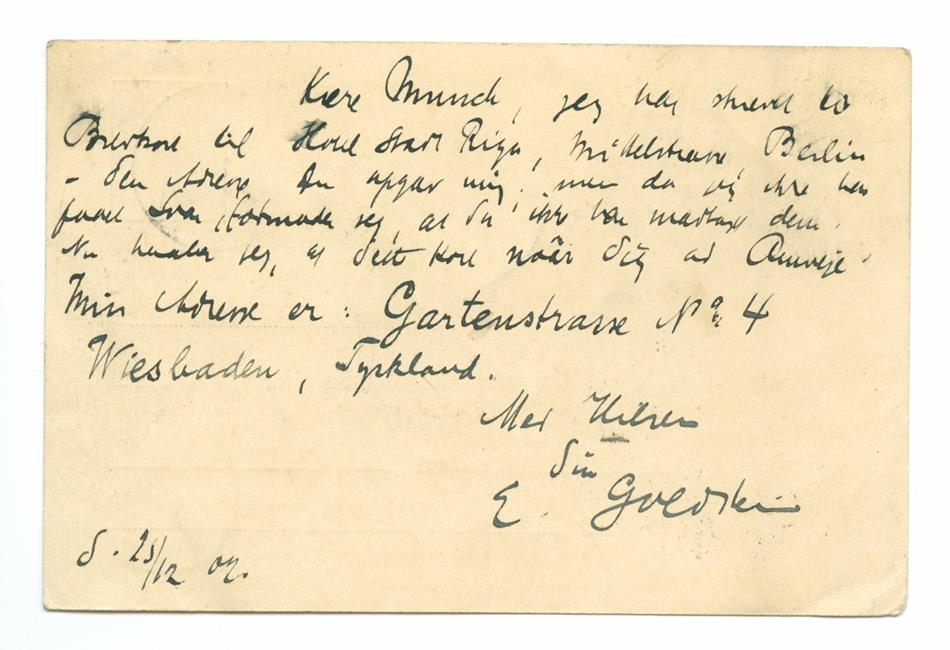 Kære Munch, jeg har skrevet to
Brevkort til Hotel Stadt Riga, Mittelstrasse, Berlin
– den Adresse Du opgav mig; men da jeg ikke har
faaet Svar, formoder jeg, at Du ikke har modtaget dem.
Nu haaber jeg, at dette Kort naar Dig ad Omveje.
Min Adresse er: Gartenstrasse No 4
Wiesbaden, Tyskland.
Med Hilsen
Din
E. Goldstein
d. 25/12 02.